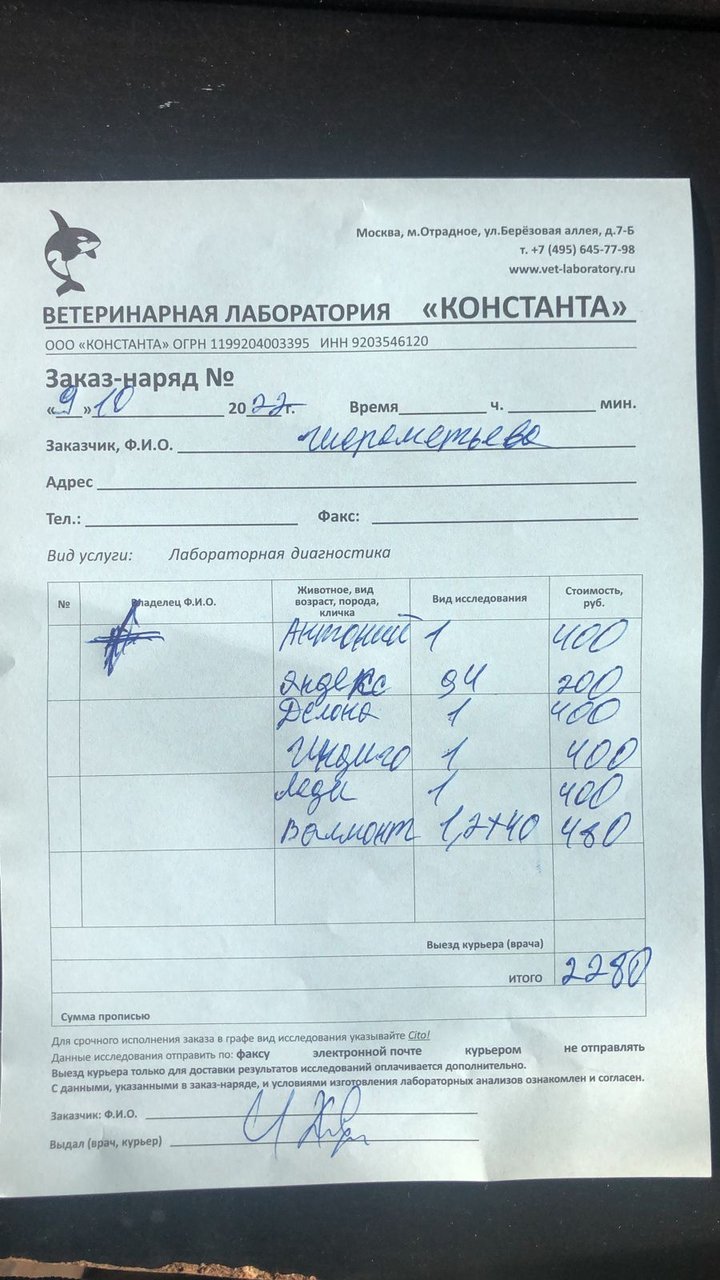 Москва, м.Отрадное, ул.Берёзовая аллея, д.7-Б
т. +7 (495) 645-77-98
www.vet-laboratory.ru
ВЕТЕРИНАРНАЯ ЛАБОРАТОРИЯ «КОНСТАНТА»
ООО «КОНСТАНТА» ОГРН 1199204003395 ИНН 9203546120
Заказ-наряд №
«9» 10 2022г. Время ч. мин.
Заказчик, Ф.И.О. Шереметьево
Адрес
Тел.: Факс:
Вид услуги: Лабораторная диагностика
№ Владелец Ф.И.О. Животное, вид возраст, порода, кличка Вид исследования Стоимость, руб.
Антоний 1 400
Яндекс 94 200
Делона 1 400
Индиго 1 400
Леди 1 400
Валмонт 1,2+40 480
Выезд курьера (врача)
ИТОГО 2280
Сумма прописью
Для срочного исполнения заказа в графе вид исследования указывайте Cito!
Данные исследования отправить по: факсу электронной почте курьером не отправлять
Выезд курьера только для доставки результатов исследований оплачивается дополнительно.
С данными, указанными в заказ-наряде, и условиями изготовления лабораторных анализов ознакомлен и согласен.
Заказчик: Ф.И.О.
Выдал (врач, курьер)